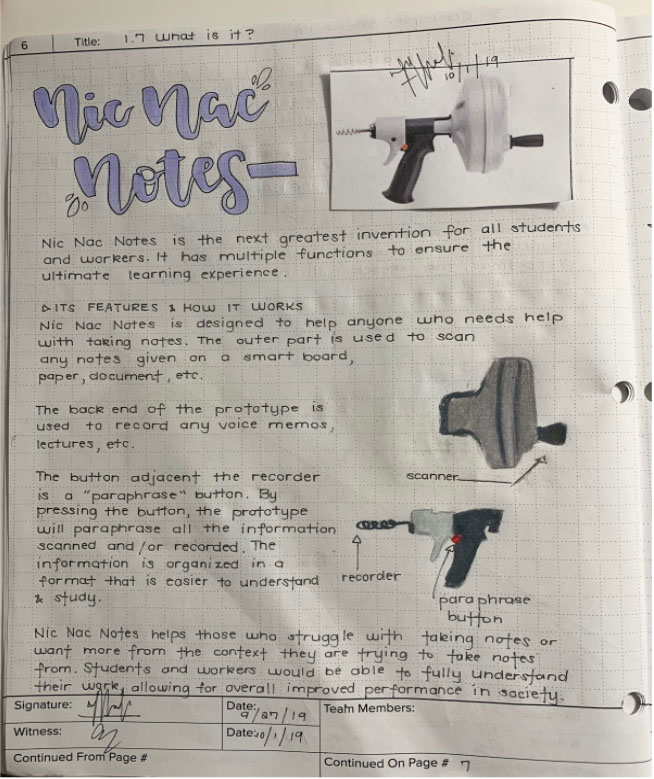 6 Title: 1.7 What is it?
10/1/19
Nic Nac
Notes—
Nic Nac Notes is the next greatest invention for all students
and workers. It has multiple functions to ensure the
ultimate learning experience.
▷ITS FEATURES & HOW IT WORKS
Nic Nac Notes is designed to help anyone who needs help
with taking notes. The outer part is used to scan
any notes given on a smart board,
paper, document, etc.
The back end of the prototype is
used to record any voice memos,
lectures, etc.
scanner
The button adjacent the recorder
is a "paraphrase" button. By
pressing the button, the prototype
will paraphrase all the information
scanned and/or recorded. The
information is organized in a
format that is easier to understand
& study.
recorder
paraphrase
button
Nic Nac Notes helps those who struggle with taking notes or
want more from the context they are trying to take notes
from. Students and workers would be able to fully understand
their work, allowing for overall improved performance in society.
Signature: Date: 9/27/19 Team Members:
Witness: Date: 10/1/19
Continued From Page # Continued On Page # 7